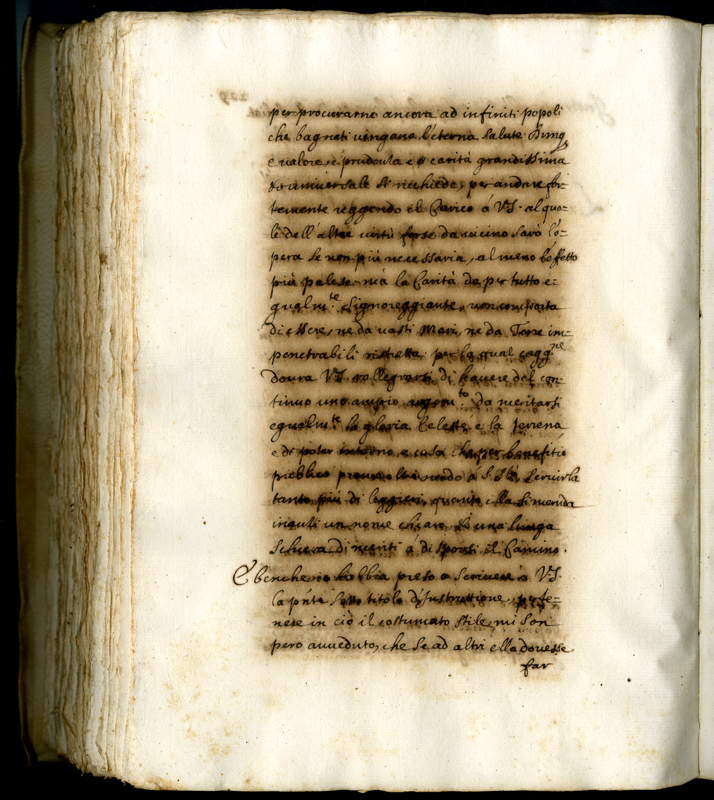 per procurarne ancora ad infiniti popoli
che bagnati vengano l'eterna salute.
e valore, e prudenza e carità grandissima
universale si richiede, per andare for-
temente reggendo il Carico à VS. al qua-
le dell'altre virtù forse da vicino sarà l'o-
pera se non più necessaria, al meno l'effetto
più palese, mà la Carità da per tutto e-
gualm.te Signoreggiante, non comporta
di essere, ne da vasti Mari, ne da Terre im-
penetrabili ristretta per la qual cagg.ne
dourà VS. rallegrarsi di hauere del con-
tinuo uno ampio argom.to da meritarsi
egualm.te la gloria Celeste e la terrena
e di poter intorno, e cosa che per benefitio
publico preme oltre modo à S. S.tà, seruirla
tanto più di leggieri, quanto ella si
un nome chiaro, et una lunga
schiera di meriti à disporsi il Camino.
E benche io habbia preso a scriuere à VS.
la pñte sotto titolo d'Instruttione, per te-
nere in ciò il costumato stile, mi son
pero auueduto, che se ad altri ella douesse
far